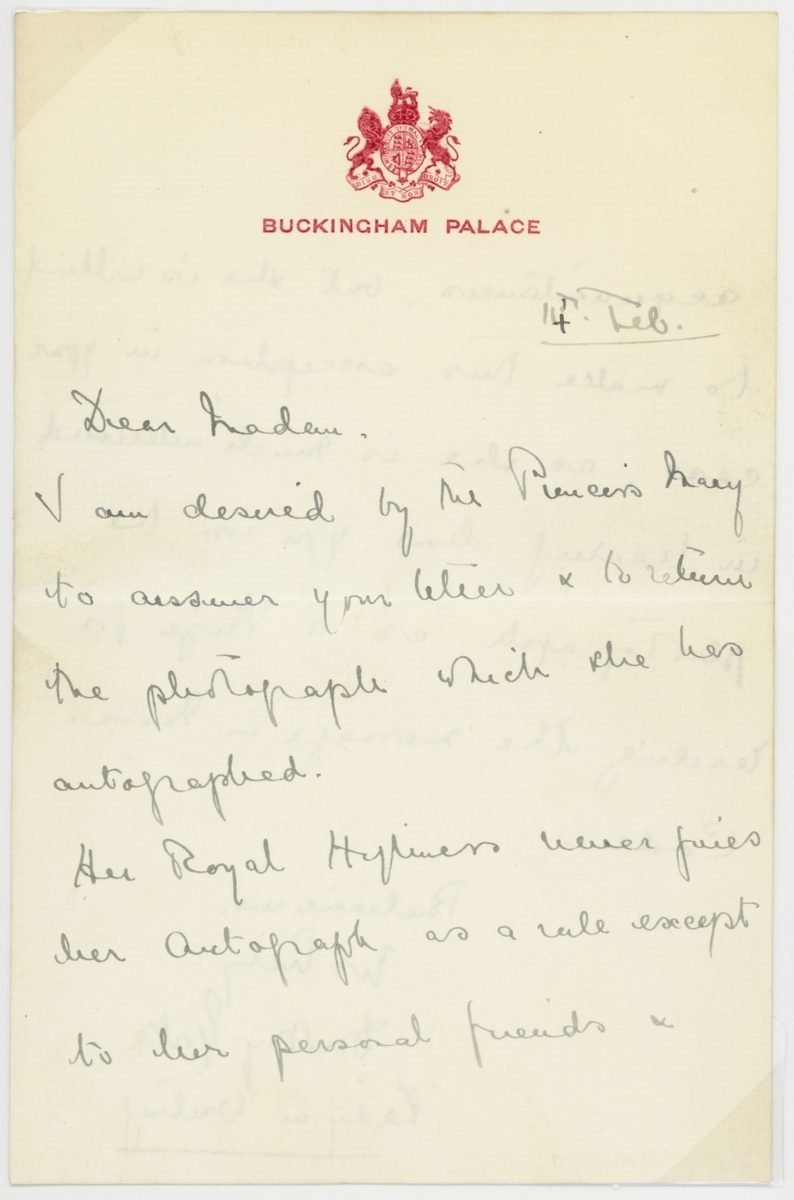 BUCKINGHAM PALACE
14th. Feb.
Dear Madam.
I am desired by the Princess Mary
to answer your letter & to return
the photograph which she has
autographed.
Her Royal Highness never gives
her Autograph as a rule except
to her personal friends &